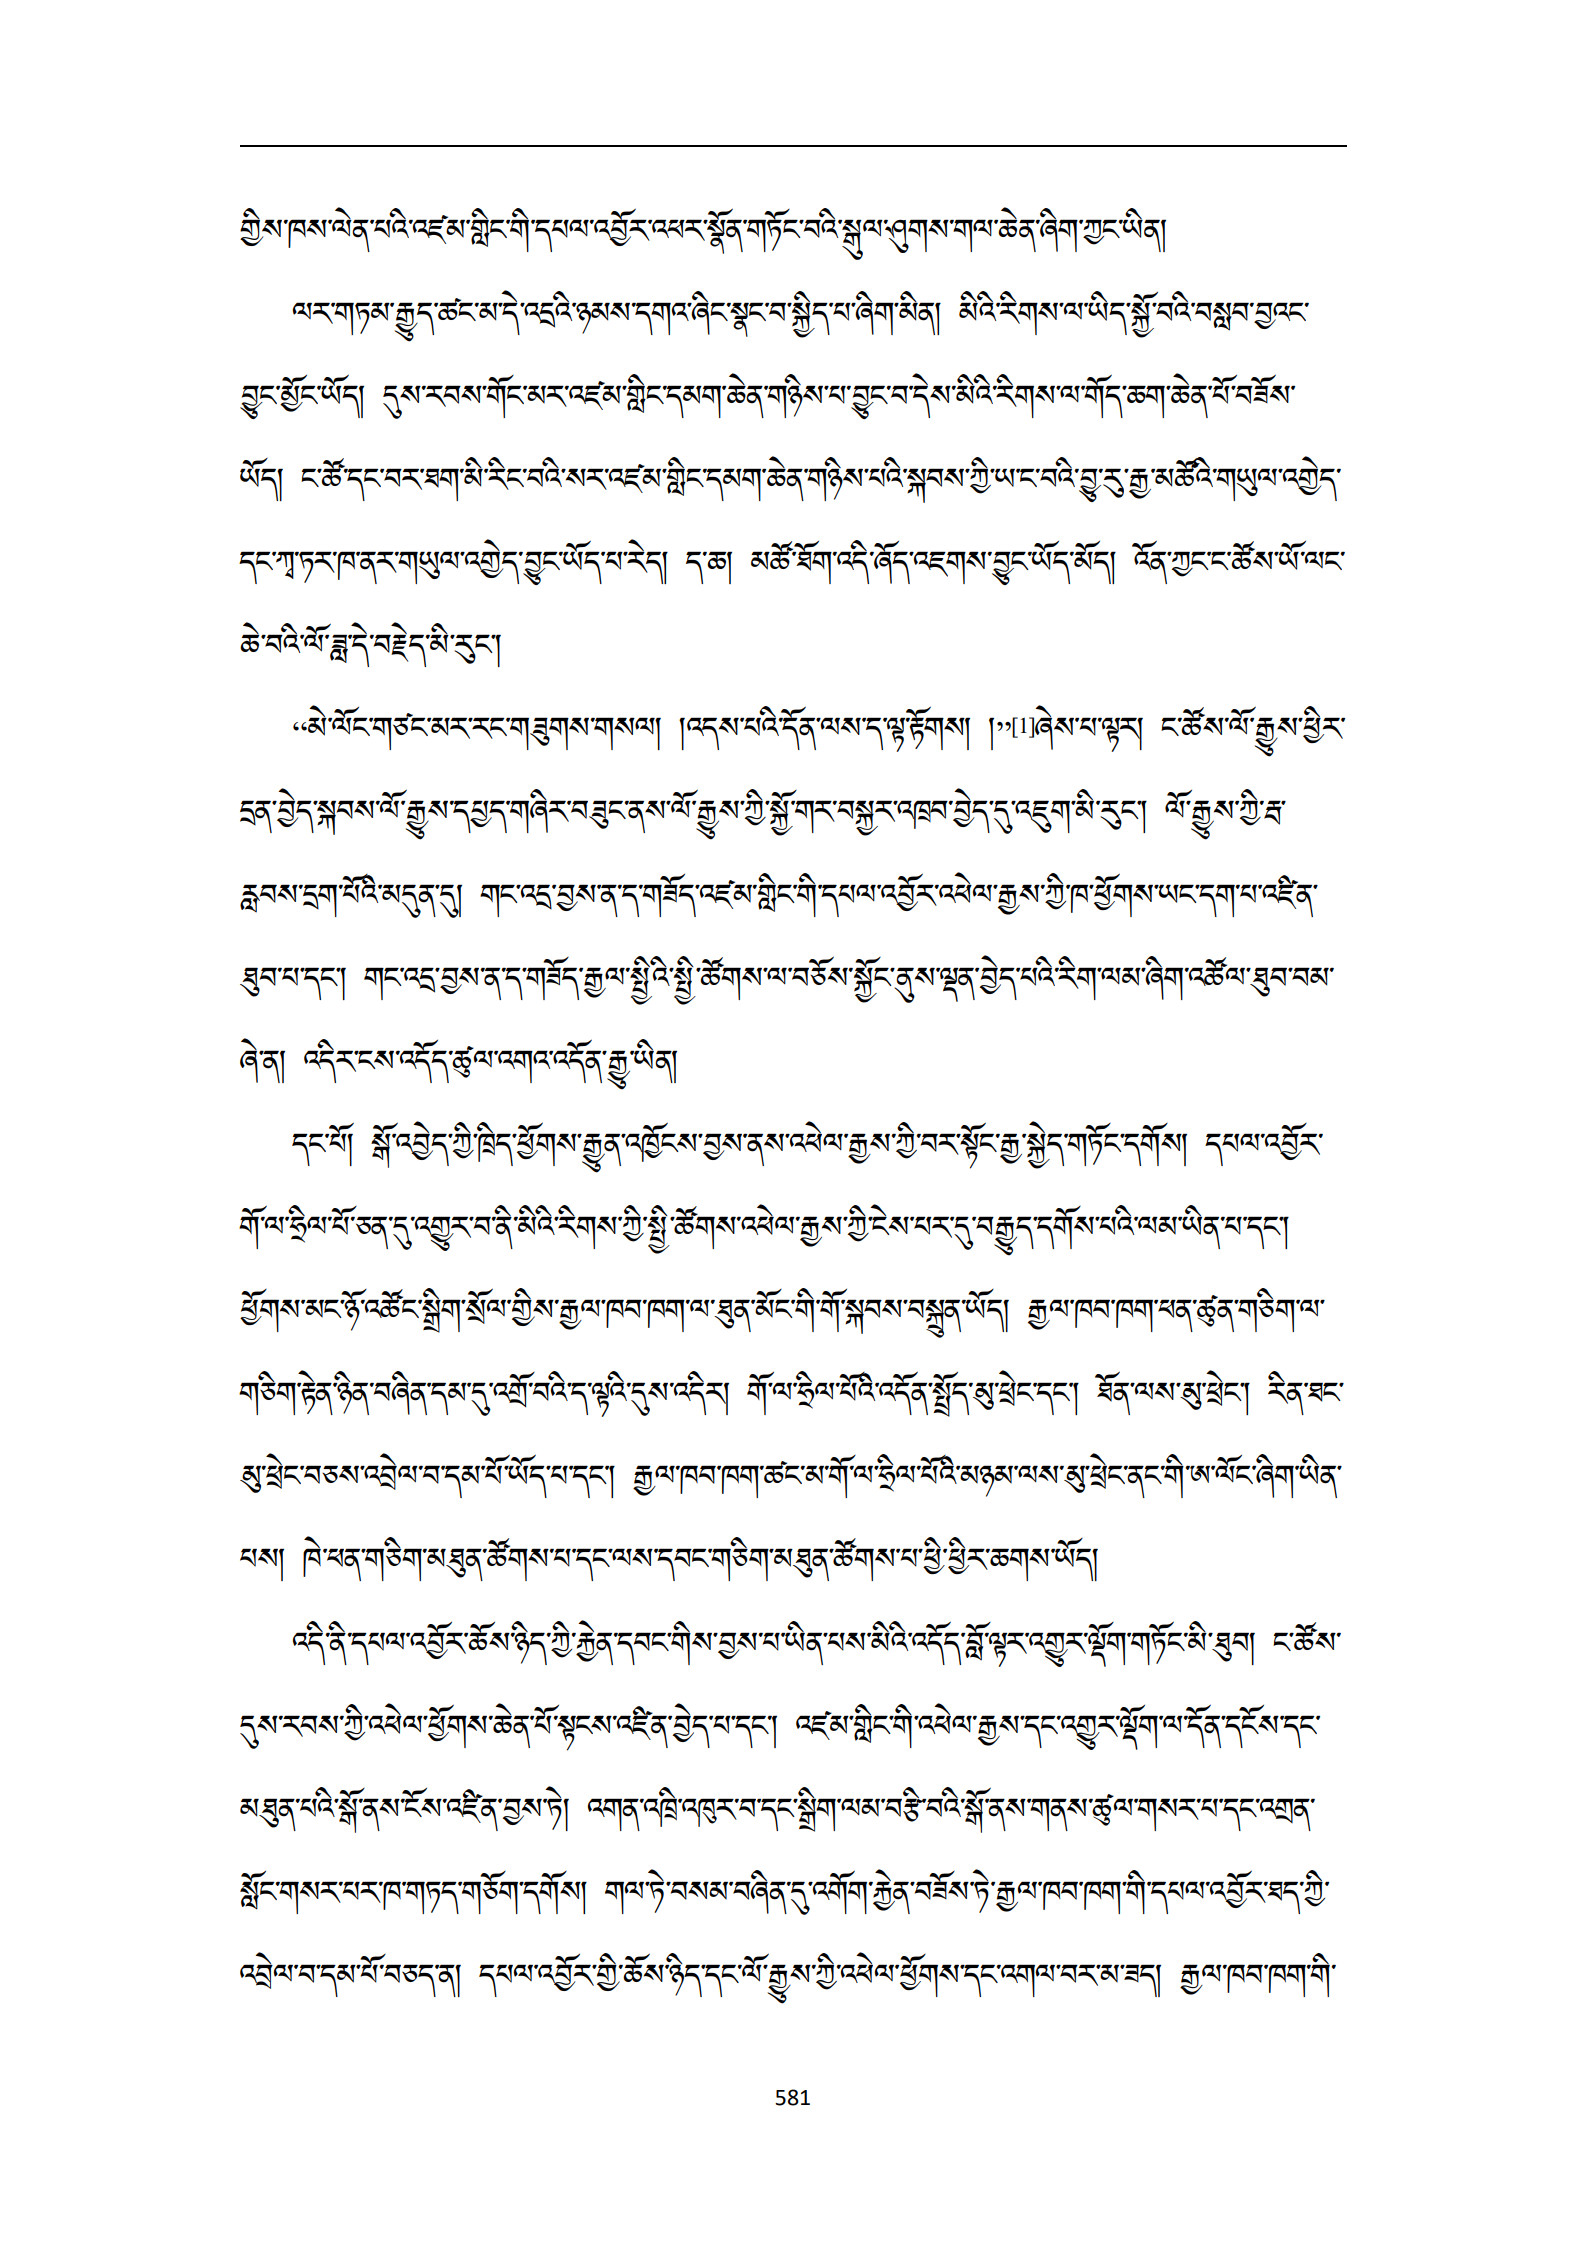 གྱིས་ཁས་ལེན་པའི་འཛམ་གླིང་གི་དཔལ་འབྱོར་འཕར་སྣོན་གཏོང་བའི་སྒུལ་ཤུགས་གལ་ཆེན་ཞིག་ཀྱང་ཡིན།
ལར་གཏམ་རྒྱུད་ཚང་མ་དེ་འདྲའི་ཉམས་དགའ་ཞིང་སྣང་བ་སྐྱིད་པ་ཞིག་མིན། མིའི་རིགས་ལ་ཡིད་སྐྱོ་བའི་བསླབ་བྱའང་
བྱུང་མྱོང་ཡོད། དུས་རབས་གོང་མར་འཛམ་གླིང་དམག་ཆེན་གཉིས་པ་བྱུང་བ་དེས་མིའི་རིགས་ལ་གོད་ཆག་ཆེན་པོ་བཟོས་
ཡོད། ང་ཚོ་དང་བར་ཐག་མི་རིང་བའི་སར་འཛམ་གླིང་དམག་ཆེན་གཉིས་པའི་སྐབས་ཀྱི་ཡ་ང་བའི་བྱུ་རུ་རྒྱ་མཚོའི་གཡུལ་འགྱེད་
དང་ཀྭ་ཏར་ཁ་ནར་གཡུལ་འགྱེད་བྱུང་ཡོད་པ་རེད། ད་ཆ། མཚོ་ཐོག་འདི་ཞོད་འཇགས་བྱུང་ཡོད་མོད། འོན་ཀྱང་ང་ཚོས་ཡོ་ལང་
ཆེ་བའི་ལོ་ཟླ་དེ་བརྗེད་མི་རུང་།
“མེ་ལོང་གཙང་མར་རང་གཟུགས་གསལ། །འདས་པའི་དོན་ལས་ད་ལྟ་རྟོགས། །”[1]ཞེས་པ་ལྟར། ང་ཚོས་ལོ་རྒྱུས་ཕྱིར་
དྲན་བྱེད་སྐབས་ལོ་རྒྱུས་དཔྱད་གཞིར་བཟུང་ནས་ལོ་རྒྱུས་ཀྱི་སྐྱོ་གར་བསྐྱར་འཁྲབ་བྱེད་དུ་འཇུག་མི་རུང་། ལོ་རྒྱུས་ཀྱི་རྦ་
རླབས་དྲག་པོའི་མདུན་དུ། གང་འདྲ་བྱས་ན་ད་གཟོད་འཛམ་གླིང་གི་དཔལ་འབྱོར་འཕེལ་རྒྱས་ཀྱི་ཁ་ཕྱོགས་ཡང་དག་པ་འཛིན་
ཐུབ་པ་དང་། གང་འདྲ་བྱས་ན་ད་གཟོད་རྒྱལ་སྤྱིའི་སྤྱི་ཚོགས་ལ་བཅོས་སྐྱོང་ནུས་ལྡན་བྱེད་པའི་རིག་ལམ་ཞིག་འཚོལ་ཐུབ་བམ་
ཞེ་ན། འདིར་ངས་འདོད་ཚུལ་འགའ་འདོན་རྒྱུ་ཡིན།
དང་པོ། སྒོ་འབྱེད་ཀྱི་ཁྲིད་ཕྱོགས་རྒྱུན་འཁྱོངས་བྱས་ནས་འཕེལ་རྒྱས་ཀྱི་བར་སྟོང་རྒྱ་སྐྱེད་གཏོང་དགོས། དཔལ་འབྱོར་
གོ་ལ་ཧྲིལ་པོ་ཅན་དུ་འགྱུར་བ་ནི་མིའི་རིགས་ཀྱི་སྤྱི་ཚོགས་འཕེལ་རྒྱས་ཀྱི་ངེས་པར་དུ་བརྒྱུད་དགོས་པའི་ལམ་ཡིན་པ་དང་།
ཕྱོགས་མང་ཉོ་འཚོང་སྒྲིག་སྲོལ་གྱིས་རྒྱལ་ཁབ་ཁག་ལ་ཐུན་མོང་གི་གོ་སྐབས་བསྐྲུན་ཡོད། རྒྱལ་ཁབ་ཁག་ཕན་ཚུན་གཅིག་ལ་
གཅིག་རྟེན་ཉིན་བཞིན་དམ་དུ་འགྲོ་བའི་ད་ལྟའི་དུས་འདིར། གོ་ལ་ཧྲིལ་པོའི་འདོན་སྤྲོད་མུ་ཕྲེང་དང་། ཐོན་ལས་མུ་ཕྲེང་། རིན་ཐང་
མུ་ཕྲེང་བཅས་འབྲེལ་བ་དམ་པོ་ཡོད་པ་དང་། རྒྱལ་ཁབ་ཁག་ཚང་མ་གོ་ལ་ཧྲིལ་པོའི་མཉམ་ལས་མུ་ཕྲེང་ནང་གི་ཨ་ལོང་ཞིག་ཡིན་
པས། ཁེ་ཕན་གཅིག་མཐུན་ཚོགས་པ་དང་ལས་དབང་གཅིག་མཐུན་ཚོགས་པ་ཕྱི་ཕྱིར་ཆགས་ཡོད།
འདི་ནི་དཔལ་འབྱོར་ཆོས་ཉིད་ཀྱི་རྐྱེན་དབང་གིས་བྱས་པ་ཡིན་པས་མིའི་འདོད་བློ་ལྟར་འགྱུར་ལྡོག་གཏོང་མི་ཐུབ། ང་ཚོས་
དུས་རབས་ཀྱི་འཕེལ་ཕྱོགས་ཆེན་པོ་སྟངས་འཛིན་བྱེད་པ་དང་། འཛམ་གླིང་གི་འཕེལ་རྒྱས་དང་འགྱུར་ལྡོག་ལ་དོན་དངོས་དང་
མཐུན་པའི་སྒོ་ནས་ངོས་འཛིན་བྱས་ཏེ། འགན་འཁྲི་འཁུར་བ་དང་སྒྲིག་ལམ་བརྩི་བའི་སྒོ་ནས་གནས་ཚུལ་གསར་པ་དང་འགྲན་
སློང་གསར་པར་ཁ་གཏད་གཅོག་དགོས། གལ་ཏེ་བསམ་བཞིན་དུ་འགོག་རྐྱེན་བཟོས་ཏེ་རྒྱལ་ཁབ་ཁག་གི་དཔལ་འབྱོར་ཐད་ཀྱི་
འབྲེལ་བ་དམ་པོ་བཅད་ན། དཔལ་འབྱོར་གྱི་ཆོས་ཉིད་དང་ལོ་རྒྱུས་ཀྱི་འཕེལ་ཕྱོགས་དང་འགལ་བར་མ་ཟད། རྒྱལ་ཁབ་ཁག་གི་
581